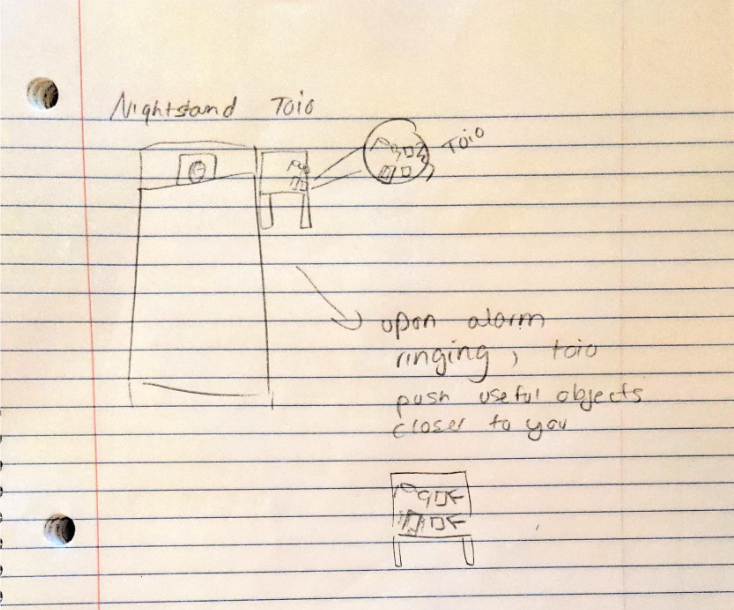 Nightstand Toio
Toio
upon alarm
ringing, toio
push useful objects
closer to you